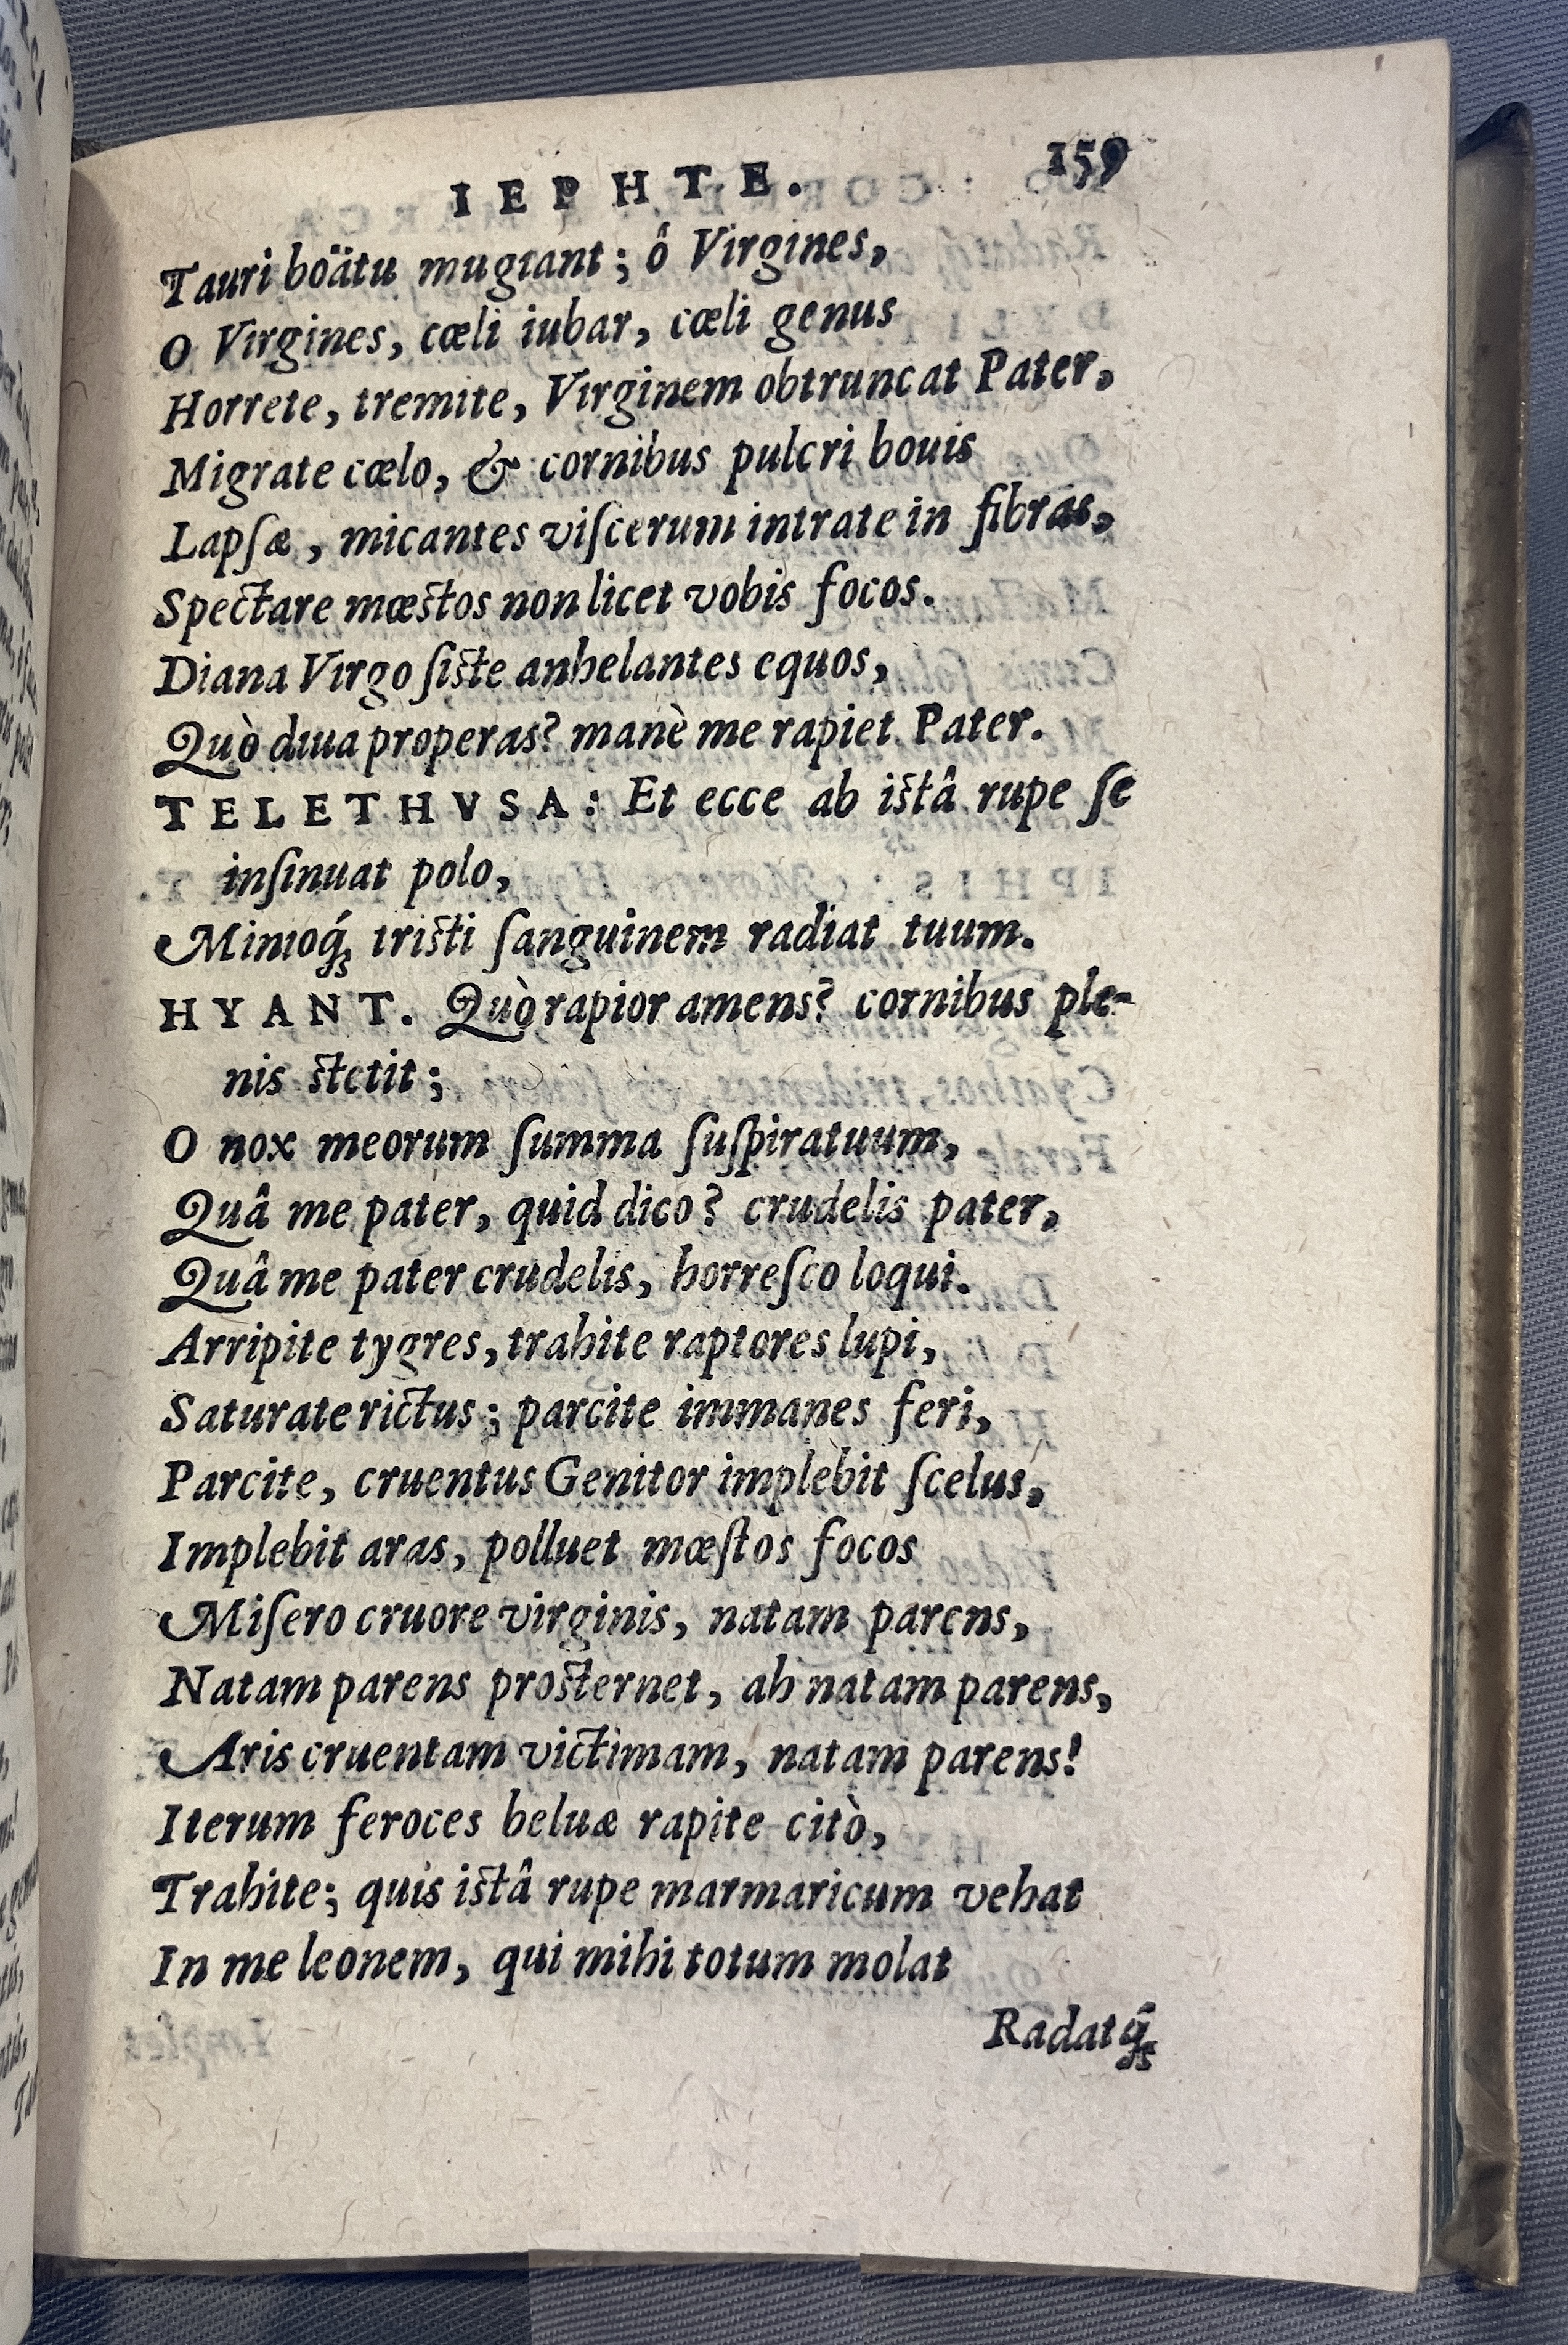 IEPHTE. 159
Tauri boätu mugiant; ô Virgines,
O Virgines, cœli iubar, cœli genus
Horrete, tremite, Virginem obtruncat Pater,
Migrate cœlo, & cornibus pulcri bouis
Lapſæ, micantes viſcerum intrate in fibras,
Spectare mœstos non licet vobis focos.
Diana Virgo ſiste anhelantes equos,
Quò diua properas? manè me rapiet Pater.
TELETHVSA: Et ecce ab istâ rupe ſe
inſinuat polo,
Minioq́; tristi ſanguinem radiat tuum.
HYANT. Quò rapior amens? cornibus ple-
nis stetit;
O nox meorum ſumma ſuſpiratuum,
Quâ me pater, quid dico? crudelis pater,
Quâ me pater crudelis, horreſco loqui.
Arripite tygres, trahite raptores lupi,
Saturate rictus; parcite immanes feri,
Parcite, cruentus Genitor implebit ſcelus,
Implebit aras, polluet mœſtos focos
Miſero cruore virginis, natam parens,
Natam parens prosternet, ah natam parens,
Aris cruentam victimam, natam parens!
Iterum feroces beluæ rapite citò,
Trahite; quis istâ rupe marmaricum vehat
In me leonem, qui mihi totum molat
Radatq́;